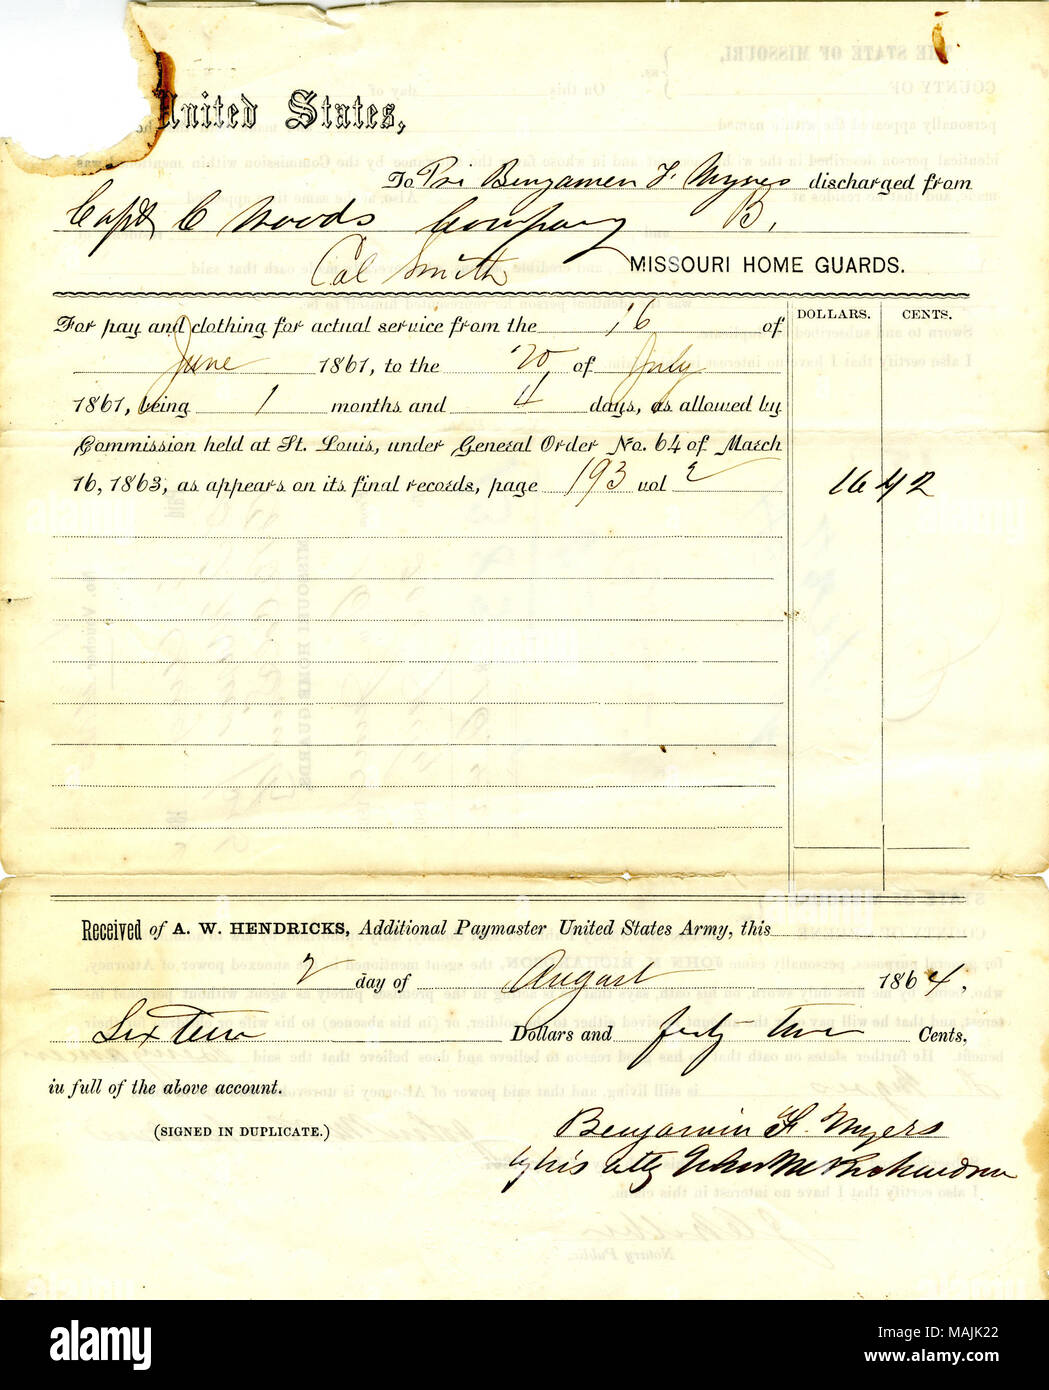 United States,
To Pri Benjamen F. Myres discharged from
Capt C Woods Company B,
Col Smith MISSOURI HOME GUARDS.
DOLLARS. CENTS.
For pay and clothing for actual service from the 16 of
June 1861, to the 20 of July
1861, being 1 months and 4 days, as allowed by
Commission held at St. Louis, under General Order No. 64 of March
16, 1863, as appears on its final records, page 193 vol 2
16 42
Received of A. W. HENDRICKS, Additional Paymaster United States Army, this
2 day of August 1864,
Sixteen Dollars and forty two Cents,
in full of the above account.
(SIGNED IN DUPLICATE.)
Benjamin F. Myers
by his atty John M Richardson
alamy
Image ID: MAJK22
www.alamy.com